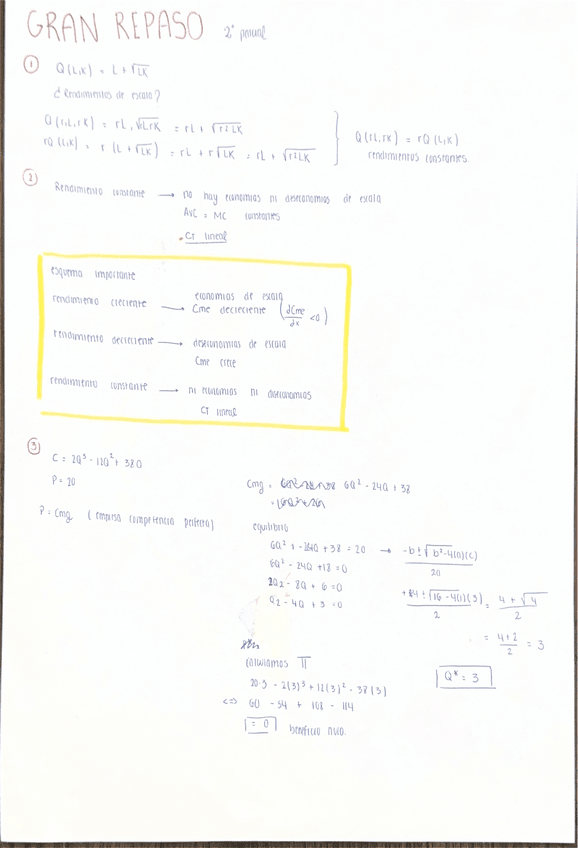 GRAN REPASO 2° parcial
① Q(L,K) = L + √LK
¿Rendimientos de escala?
Q(rL,rK) = rL + √rLrK = rL + √r²LK
rQ(L,K) = r(L+√LK) = rL + r√LK = rL + √r²LK
Q(rL,rK) = rQ(L,K)
rendimientos constantes
② Rendimiento constante → no hay economias ni deseconomias de escala
AVC = MC constantes
CT lineal
esquema importante
rendimiento creciente → economias de escala
Cme decreciente (dCme/dx <0)
rendimiento decreciente → deseconomias de escala
Cme crece
rendimiento constante → ni economias ni diseconomias
CT lineal
③ C = 2Q³ - 12Q² + 38Q
P = 20
P = Cmg (empresa competencia perfecta)
Cmg = 6Q² - 24Q + 38
equilibrio
6Q² - 24Q + 38 = 20 → -b ± √b²-4(a)(c) / 2a
6Q² - 24Q + 18 = 0
2Q2 - 8Q + 6 = 0
Q2 - 4Q + 3 = 0
+4 ± √16-4(1)(3) / 2 = 4 + √4 / 2
= 4+2 / 2 = 3
Q* = 3
calculamos Π
20·3 - 2(3)³ + 12(3)² - 38(3)
<=> 60 - 54 + 108 - 114
= 0 beneficio nulo.